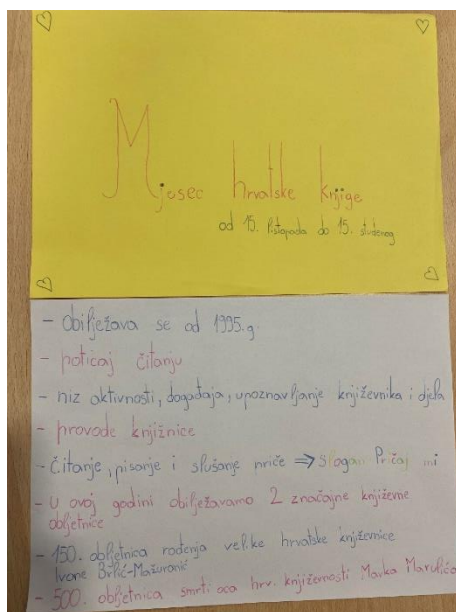 Mjesec hrvatske knjige
od 15. listopada do 15. studenog
- obilježava se od 1995.g.
- poticaj čitanju
- niz aktivnosti, događaja, upoznavljanje književnika i djela
- provode knjižnice
- čitanje, pisanje i slušanje priče ⇒ slogan Pričaj mi
- u ovoj godini obilježavamo 2 značajne književne
obljetnice
- 150. obljetnica rođenja velike hrvatske književnice
Ivane Brlić-Mažuranić
- 500. obljetnica smrti oca hrv. književnosti Marka Marulića